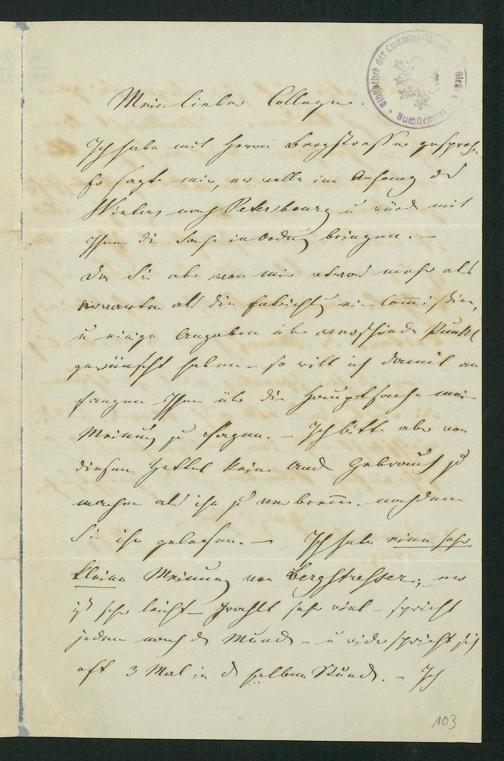 Mein lieber College.
Ich habe mit Herrn Bergstraesser gesproch.
Er sagte mir, er wolle im Anfang des
Winters nach Petersbourg u würde mit
Ihnen die Sache in Ordnung bringen. —
Da Sie aber von mir etwas mehr als
als die einer Comission,
u einige Angaben über verschiedene Punkte
gewünscht haben — so will ich damit an
fangen Ihnen über die Hauptsache meine
Meinung zu sagen. — Ich bitte aber von
diesem Zettel keine and. Gebrauch zu
machen als ihn zu verbrenn. nachdem
Sie ihn gelesen. — Ich habe eine sehr
kleine Meinung von Bergstresser., er
ist sehr leicht — prahlt sehr viel — spricht
jedem nach d. Munde — u widerspricht sich
oft 3 Mal in d. selben Stunde. — Ich
103
Bibliothek der Ludwigs-